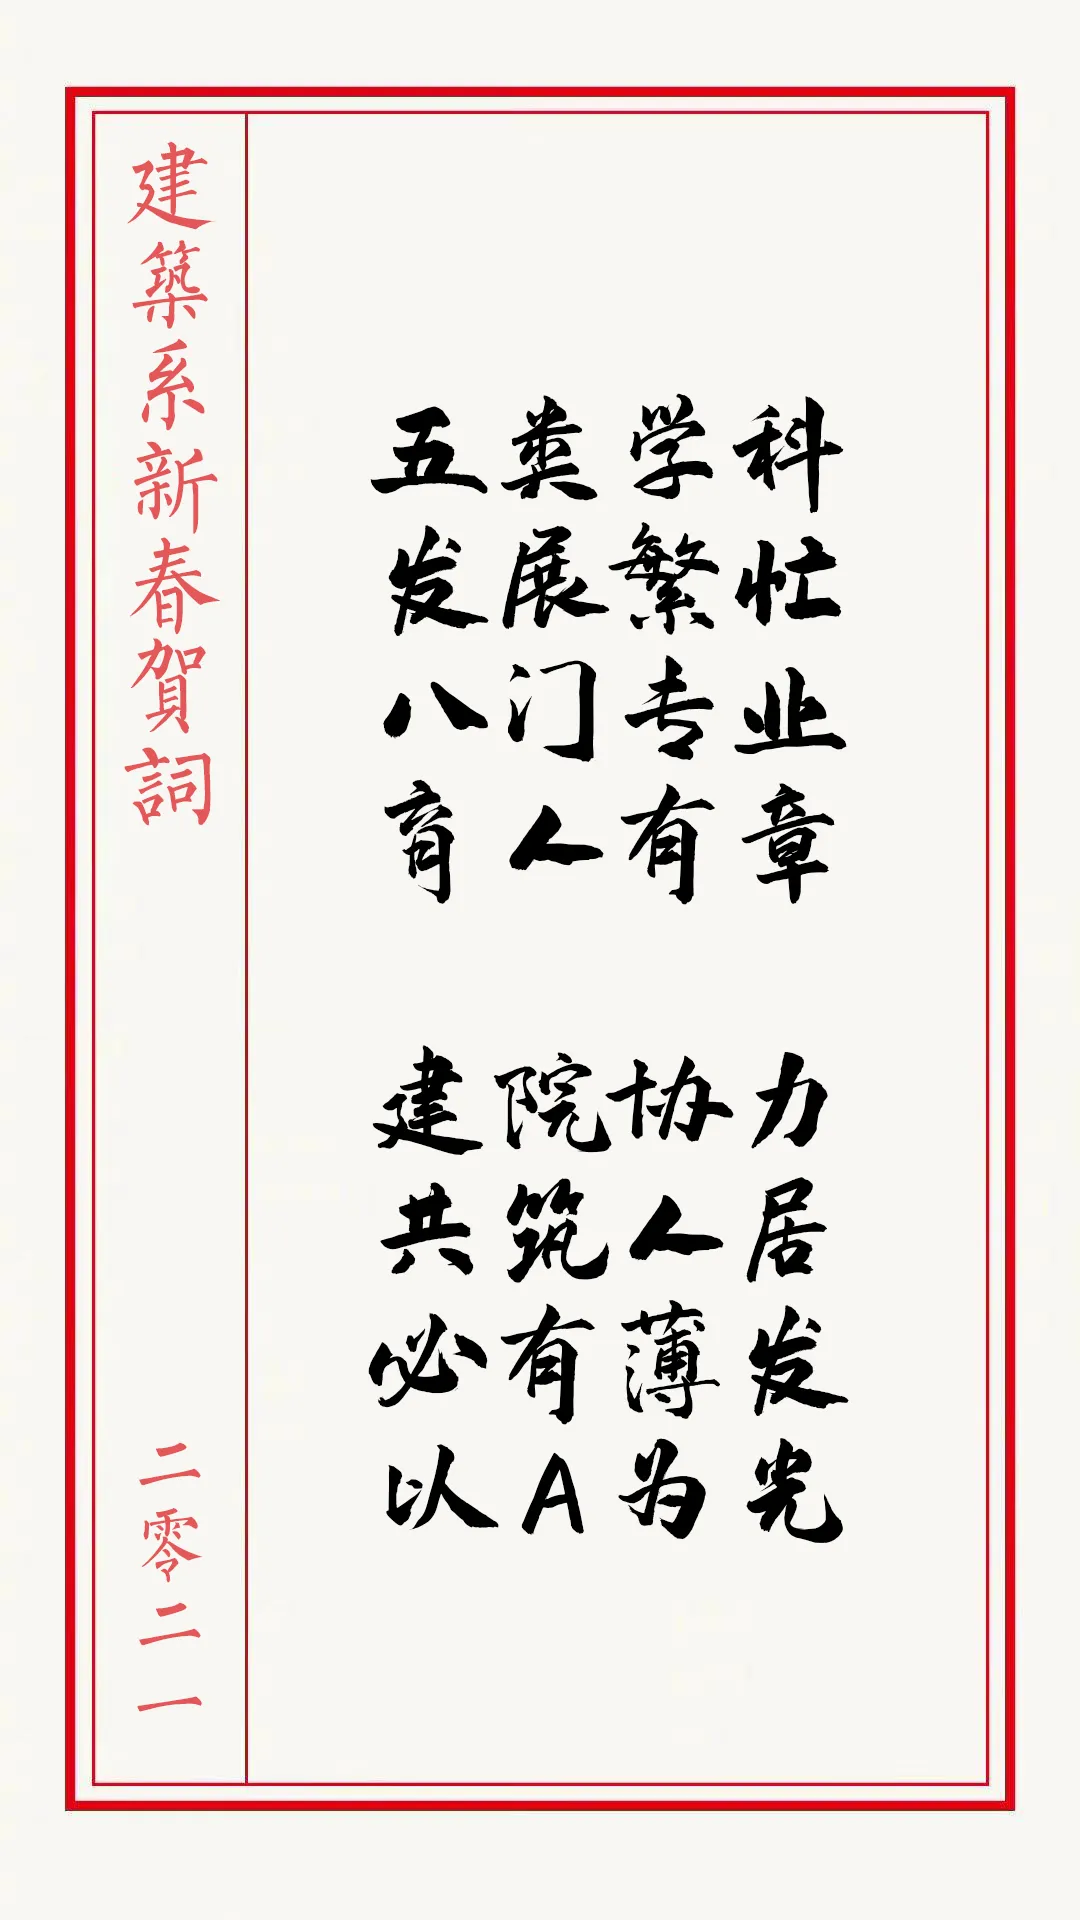 建築系新春賀詞
二零二一
五类学科
发展繁忙
八门专业
育人有章
建院协力
共筑人居
必有薄发
以A为光